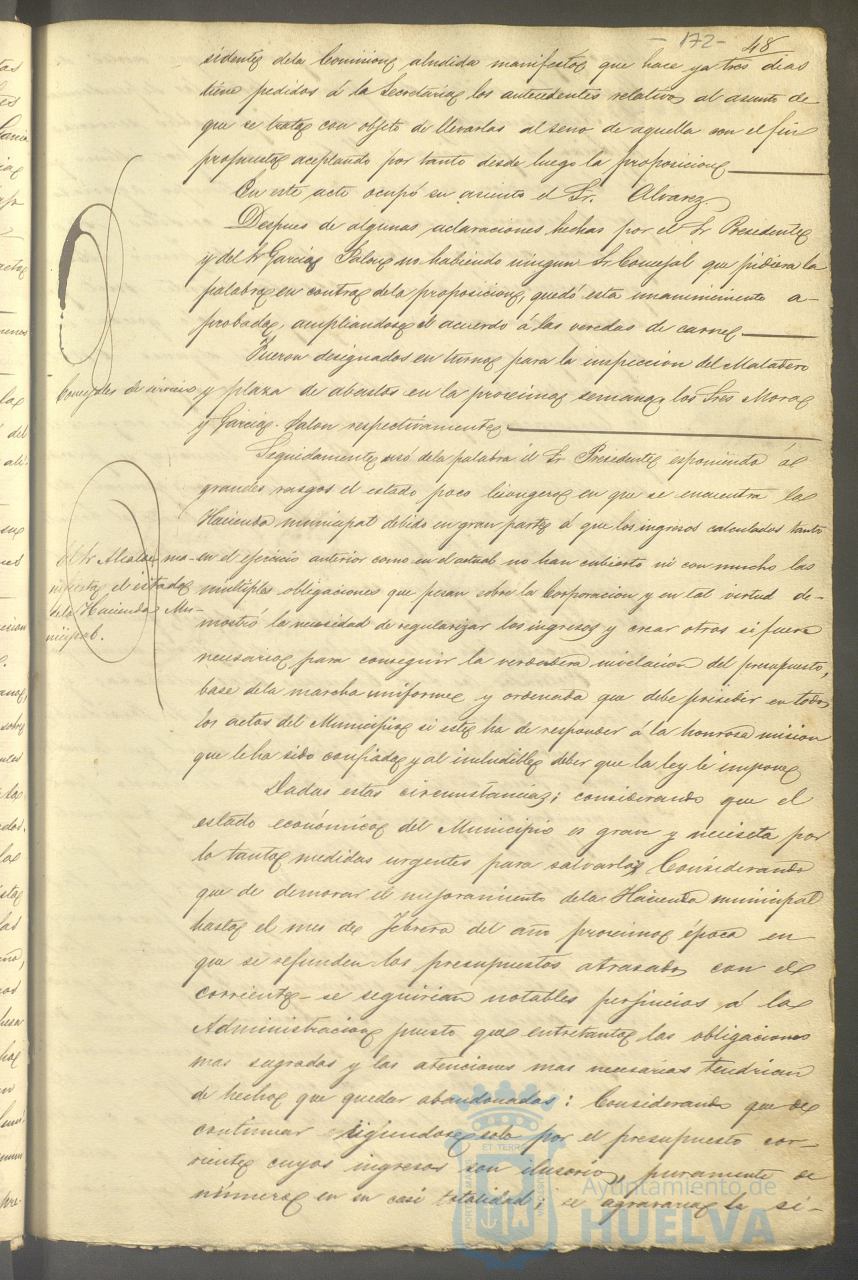 - 172 - 48
sidente de la Comision aludida manifestó que hace ya tres dias
tiene pedidos á la Secretaria los antecedentes relativos al asunto de
que se trata con objeto de llevarlas al seno de aquella con el fin
propuesto aceptando por tanto desde luego la proposicion
En este acto ocupó su asiento el Sr. Alvarez.
Despues de algunas aclaraciones hechas por el Sr Presidente
y del Sr Garcia Jalon no habiendo ningun Sr Concejal que pidiera la
palabra en contra de la proposicion, quedó esta unanimimente a-
probada, ampliandose el acuerdo á las veredas de carne
Fueron designados en turno para la inspeccion del Matadero
Concejales de servicio
y plaza de abastos en la procsima semana, los Sres Mora
y Garcia Jalon respectivamente
Seguidamente usó de la palabra el Sr Presidente esponiendo á
grandes rasgos el estado poco lisongero en que se encuentra la
Hacienda municipal debido en gran parte á que los ingresos calculados tanto
en el ejercicio anterior como en el actual no han cubierto ni con mucho las
multiples obligaciones que pesan sobre la Corporacion y en tal virtud de-
mostró la necesidad de regularizar los ingresos y crear otros si fuera
necesario para conseguir la verdadera nivelacion del presupuesto,
base de la marcha uniforme y ordenada que debe presidir en todos
los actos del Municipio si este ha de responder á la honrosa mision
que le ha sido confiada y al ineludible deber que la ley le impone
El Sr Alcalde ma-
nifiesta el estado
de la Hacienda Mu-
nicipal.
Dadas estas circunstancias; considerando que el
estado económico del Municipio es grave y necesita por
lo tanto medidas urgentes para salvarlo; Considerando
que de demorar el mejoramiento de la Hacienda municipal
hasta el mes de Febrero del año procsimo época en
que se refunden los presupuestos atrasados con el
corriente se seguirian notables perjuicios á la
Administracion puesto que entretanto las obligaciones
mas sagradas y las atenciones mas necesarias tendrian
de hecho que quedar abandonadas: Considerando que de
continuar rigiendose solo por el presupuesto cor-
riente cuyos ingresos son ilusorios, puramente de
número en su casi totalidad; se agravaria la si-
Ayuntamiento de
HUELVA